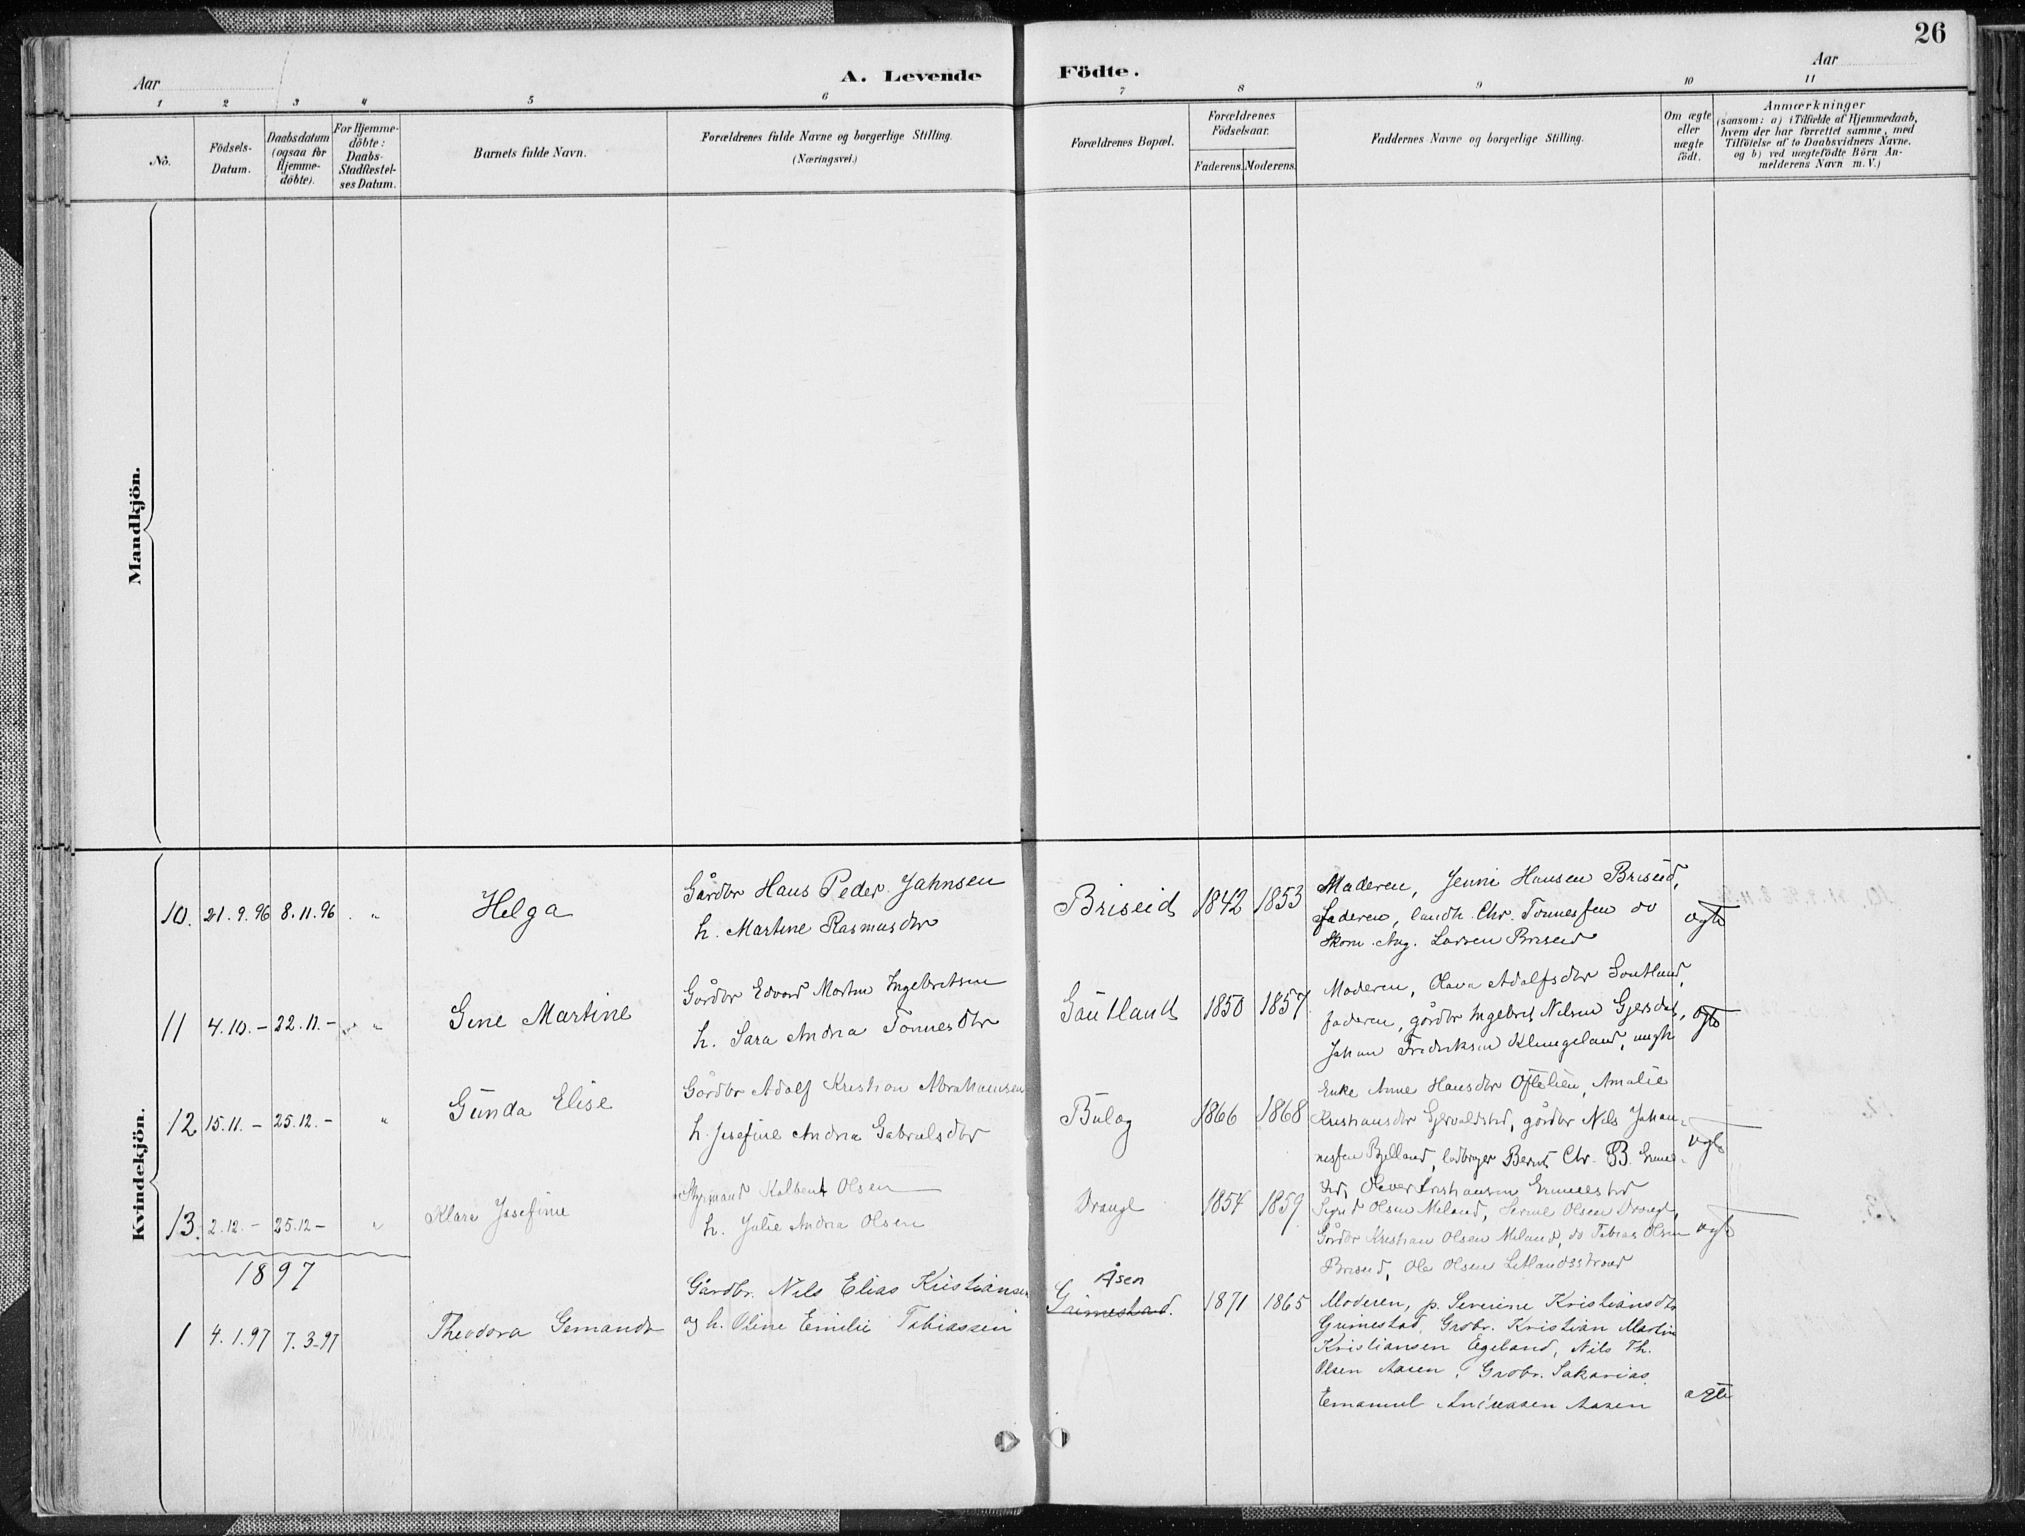 26
Aar
A. Levende Födte.
Aar
1 2 3 4 5 6 7 8 9 10 11
No.
Födsels-
Datum.
Daabsdatum
(ogsaa for
Hjemme-
döbte).
For Hjemme-
döbte:
Daabs-
Stadfæstel-
ses Datum.
Barnets fulde Navn.
Forældrenes fulde Navne og borgerlige Stilling.
(Næringsvei.)
Forældrenes Bopæl.
Forældrenes
Födselsaar.
Faderens. Moderens.
Faddernes Navne og borgerlige Stilling.
Om ægte
eller
uægte
födt.
Anmærkninger
(saasom: a) i Tilfælde af Hjemmedaab,
hvem der har forrettet samme, med
Tilföielse af to Daabsvidners Navne.
og b) ved uægtefödte Börn An-
melderens Navn m. V.)
Mandkjön.
Kvindekjön.
10. 21.9.96 8.11.96 " Helga
Gårdbr Hans Peder Jahnsen
h. Martine Rasmusdtr
Briseid 1842 1853
Moderen, Jenni Hansen Briseid,
Faderen, landh. Chr. Tönnessen do
Skom. Aug. Larsen Briseid
ægte
11 4.10.- 22.11.- " Gine Martine
Gårdbr Edvard Martin Ingebretsen
h. Sara Andrea Tönnesdtr
Gautland 1850 1857
Moderen, Olava Adolfsdtr Gautland,
faderen, gårdbr Ingebret Nilsen Gjersdal,
Johan Fredriksen Klungeland, ungk
ægte
12 15.11.- 25.12.- " Gunda Elise
Gårdbr Adolf Kristian Abrahamsen
h. Josefine Andrea Gabrielsdtr
Bulæg 1866 1868
Enke Anne Hansdtr Oftelien, Amalie
Kristiansdtr, gårdbr Nils Johan-
nessen Bjelland, Bernt Chr. B.
ægte
13. 2.12.- 25.12- " Klara Josefine
Styrmand Kolbent Olsen
h. Julie Andrea Olsen
Drangl 1854 1859
Sigrid Olsen Meland, Serine Olsen Drangl,
Gårdbr Kristian Olsen Meland, do Tobias Olsen
Briseid, Ole Olsen
ægte
1897
1 4.1.97 7.3-97 Theodora Gemandr
Gårdbr. Nils Elias Kristiansen
og h. Oline Emilie Tobiassen
Åsen
Grimestad. 1871 1865
Moderen, p. Severine Kristiansdtr
Grimestad, Grdbr. Kristian Martin
Kristiansen Egeland, Nils Th.
Olsen Aasen, Grdbr. Sakarias
Emanuel Andreasen Aasen
ægte